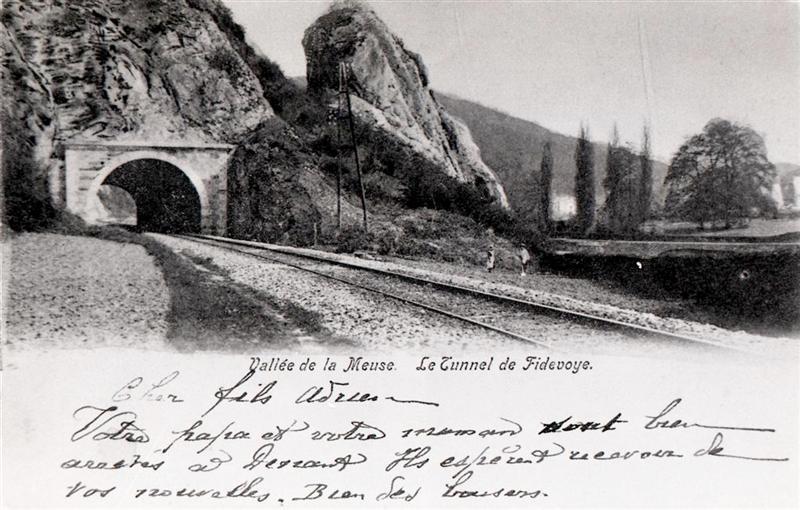 Vallée de la Meuse. Le Tunnel de Fidevoye.
Cher fils Adrien
Votre papa et votre maman sont bien
arretés a Denant Ils espèrent recevoir de
vos nouvelles. Bien des bousers.